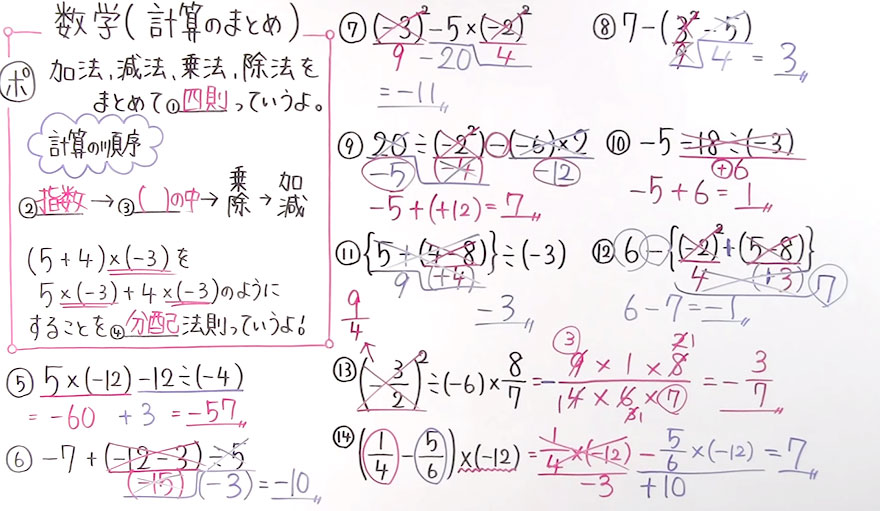 数学(計算のまとめ)
ポ 加法、減法、乗法、除法を
まとめて①四則っていうよ。
計算の順序
②指数→③( )の中→乗除→加減
(5+4)×(-3)を
5×(-3)+4×(-3)のように
することを④分配法則っていうよ!
⑤ 5×(-12)-12÷(-4)
= -60 +3 = -57
⑥ -7+(-12-3)÷5
(-15) (-3) = -10
⑦ (-3)²-5×(-2)²
9 -20 4
= -11
⑧ 7-(3²-5)
9 4 = 3
⑨ 20÷(-2²)-(-6)×2
-5 (-4) -12
-5+(+12)=7
⑩ -5-18÷(-3)
+6
-5+6=1
⑪ {5+(4-8)}÷(-3)
9 (+4)
-3
⑫ 6-{(-2)²+(5-8)}
4 (+3) 7
6-7=-1
9/4
⑬ (-3/2)²÷(-6)×8/7 = - 9×1×8 / 14×6×7 = -3/7
3 2 1
3 1
⑭ (1/4-5/6)×(-12) = 1/4×(-12) - 5/6×(-12) = 7
-3 +10